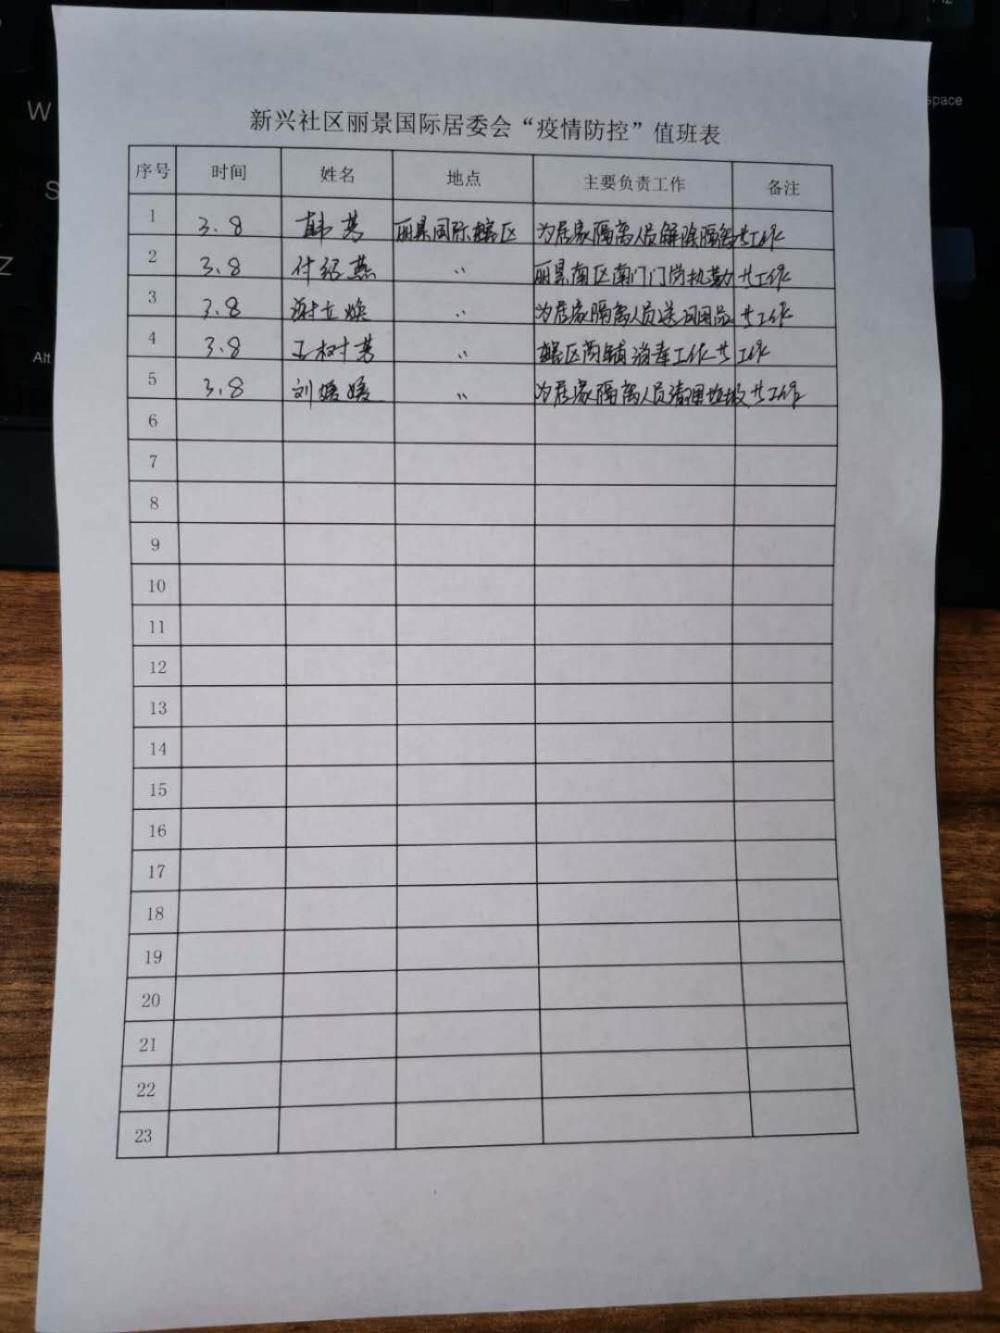 新兴社区丽景国际居委会“疫情防控”值班表
序号 时间 姓名 地点 主要负责工作 备注
1 3.8 韩芳 丽景国际辖区 为居家隔离人员解除隔离共工作
2 3.8 付绍燕 〃 丽景南区南门门岗执勤共工作
3 3.8 谢立焕 〃 为居家隔离人员送日用品共工作
4 3.8 王树芳 〃 辖区商铺消毒工作共工作
5 3.8 刘媛媛 〃 为居家隔离人员清理垃圾共工作
6
7
8
9
10
11
12
13
14
15
16
17
18
19
20
21
22
23
W
S
Z
Alt
space